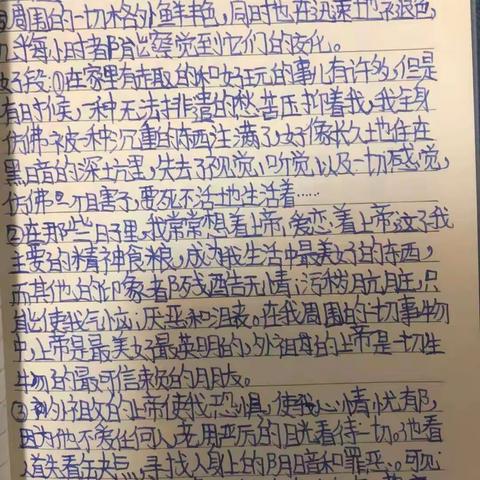 周围的一切格外鲜艳,同时也在迅速地褪色,
几乎每小时都能察觉到它们的变化。
好段:①在家里有趣的和好玩的事儿有许多,但是
有时候,一种无法排遣的愁苦压抑着我,我全身
仿佛被一种沉重的东西注满了,好像长久地住在
黑暗的深坑里,失去了视觉、听觉,以及一切感觉,
仿佛是个瞎子,要死不活地生活着……
②在那些日子里,我常常想着上帝,爱恋着上帝,这了我
主要的精神食粮,成为我生活中最美好的东西,
而其他的印象都残酷无情,污秽肮脏,只
能使我气恼、厌恶和沮丧。在我周围的一切事物
中,上帝是最美好最英明的,外祖母的上帝是一切生
物的最可信赖的朋友。
③外祖父的上帝使我恐惧,使我心情忧郁,
因为他不爱任何人,老用严厉的目光看待一切。他看
首先看缺点,寻找人身上的阴暗和罪恶。可见